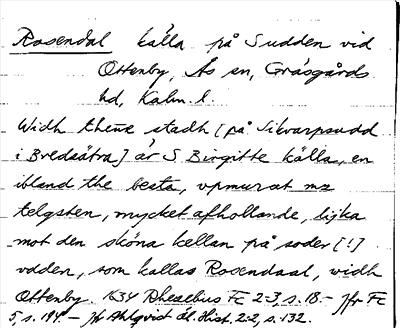 Rosendal källa på Sudden vid
Ottenby, Ås sn, Gräsgårds
hd, Kalm. l.
Widh thene stadh [på Sikvarpsudd
i Bredsätra] är S. Birgitte källa, en
ibland the besta, vpmurat mz
telgsten, mycket afhollande, lijka
mot den sköna kellan på söder [!]
vdden, som kallas Rosendaal, widh
Ottenby. 1634 Rhezelius Fc 23, s. 18. – Jfr Fc
5, s. 194. – Jfr Ahlqvist Öl. Hist. 2:2, s. 132.